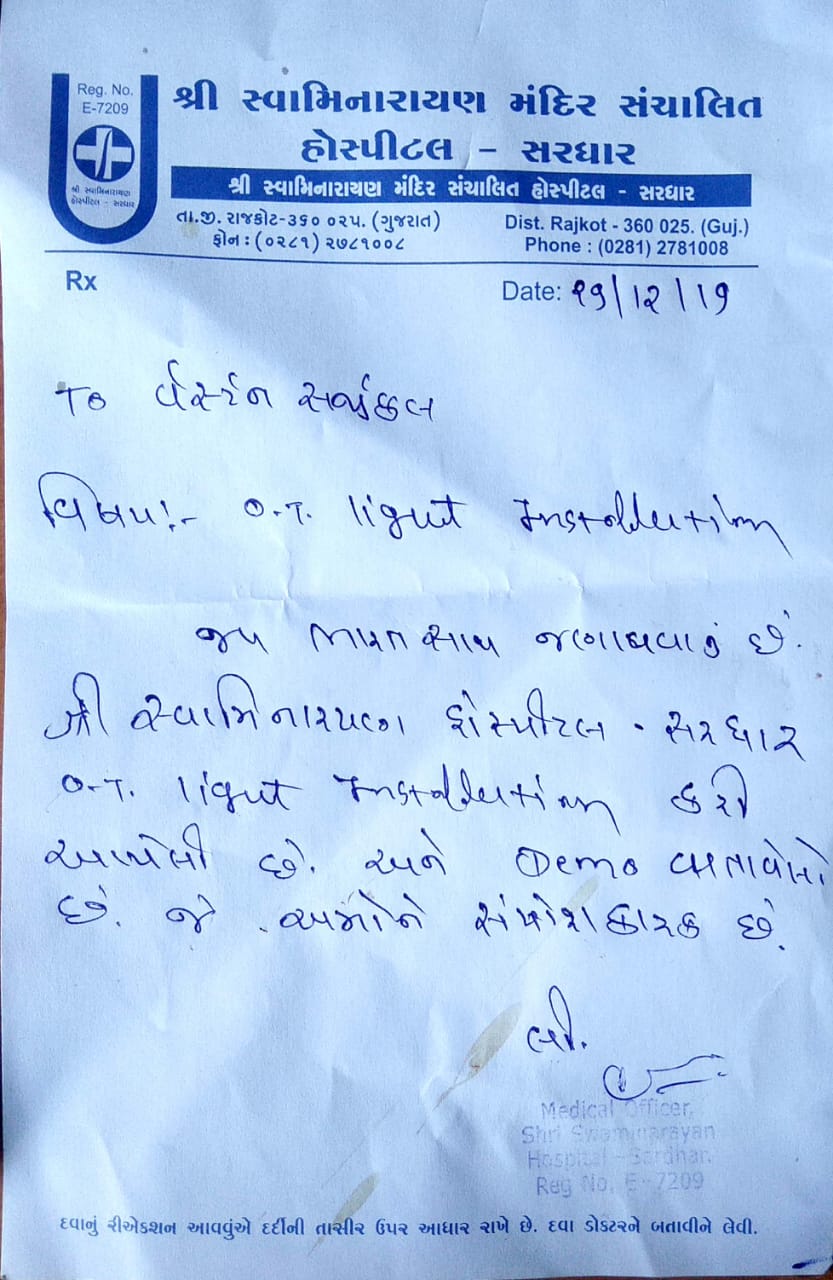 Reg. No.
E-7209
શ્રી સ્વામિનારાયણ
હોસ્પીટલ - સરધાર
શ્રી સ્વામિનારાયણ મંદિર સંચાલિત
હોસ્પીટલ - સરધાર
શ્રી સ્વામિનારાયણ મંદિર સંચાલિત હોસ્પીટલ - સરધાર
તા.જી. રાજકોટ-૩૬૦ ૦૨૫. (ગુજરાત)
ફોન : (૦૨૮૧) ૨૭૮૧૦૦૮
Dist. Rajkot - 360 025. (Guj.)
Phone : (0281) 2781008
Rx
Date: 19/12/19
To વેસ્ટર્ન સર્જીકલ
વિષય:- O.T. light Installation
જય ભારત સાથ જણાવવાનું છે.
શ્રી સ્વામિનારાયણ હોસ્પીટલ - સરધાર
O.T. light Installation કરી
આપેલી છે. અને Demo બતાવેલો
છે. જે અમોને સંતોશકારક છે.
લી.
Medical Officer,
Shri Swaminarayan
Hospital - Sardhar.
Reg No. E-7209
દવાનું રીએકશન આવવુંએ દર્દીની તાસીર ઉપર આધાર રાખે છે. દવા ડોકટરને બતાવીને લેવી.